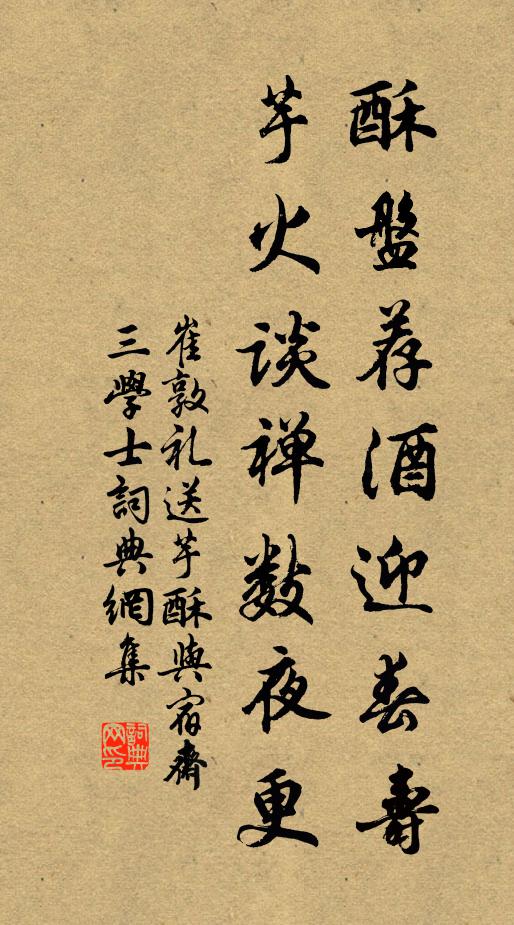 酥盤荐酒迎春壽
芋火談禅數夜更
崔敦礼送芋酥與宿齋
三學士詞典網集
詞典網印